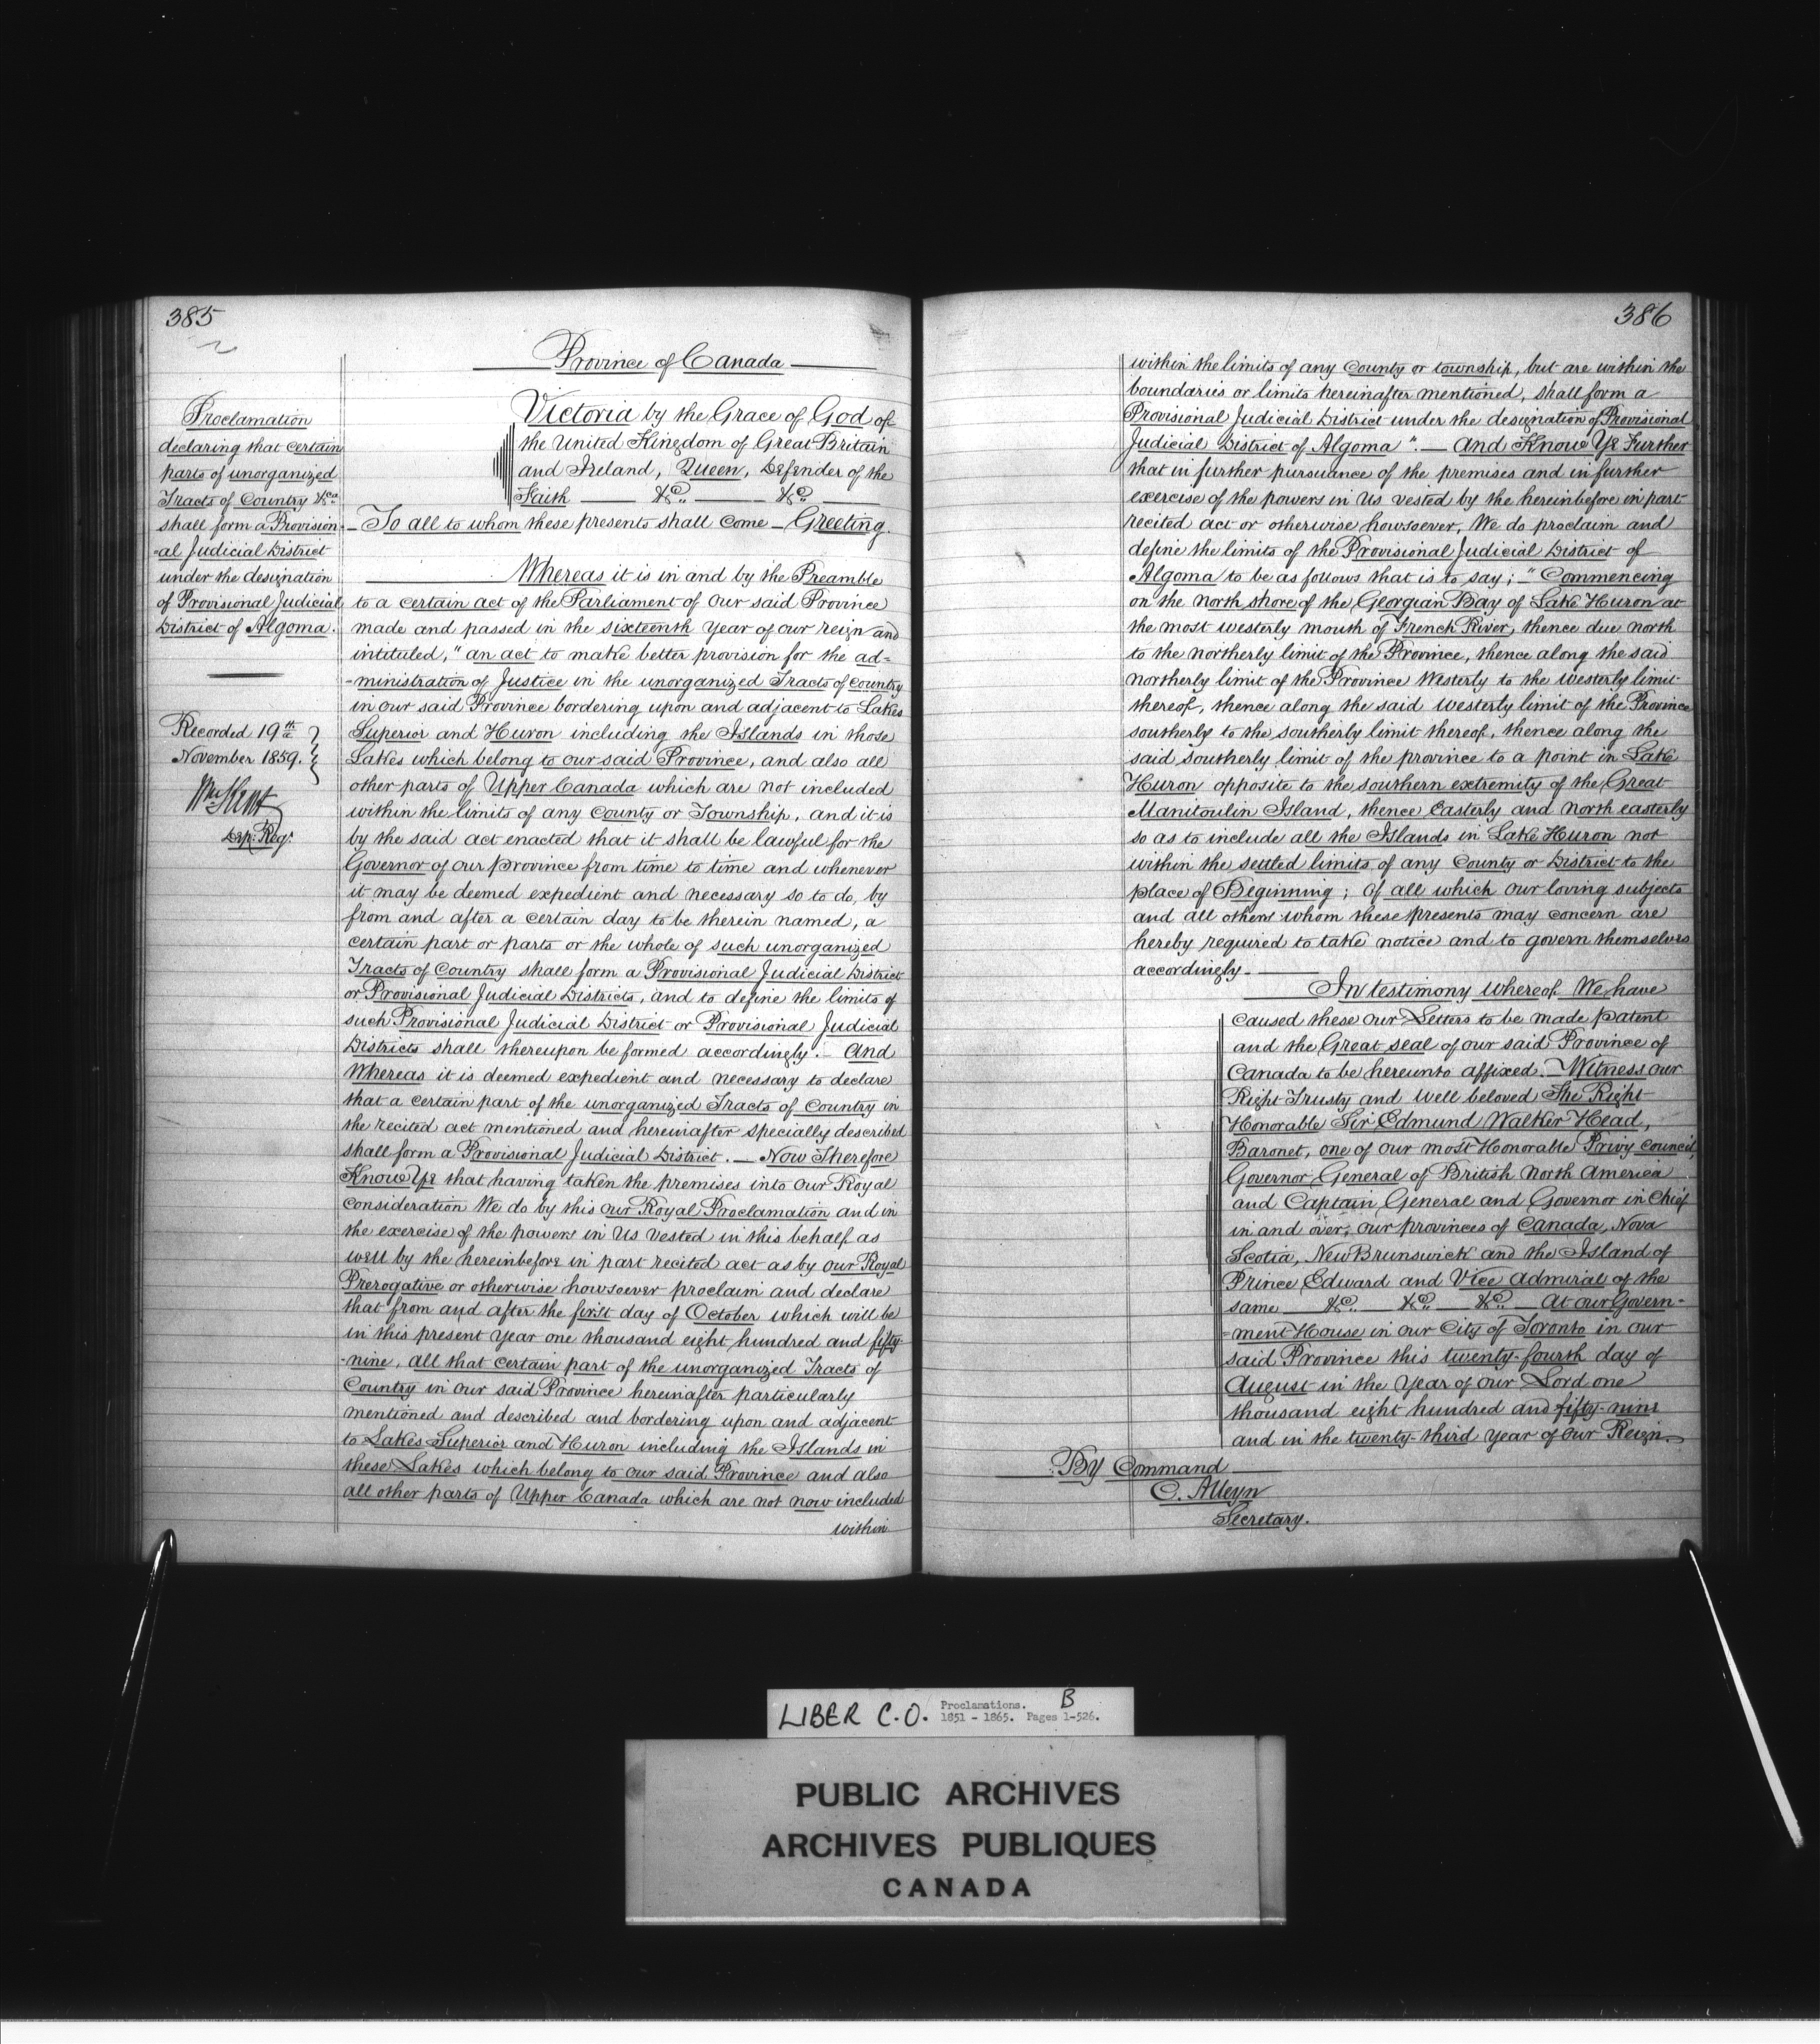 385
Province of Canada
Proclamation
declaring that certain
parts of unorganized
Tracts of Country &ca
shall form a Provision-
-al Judicial District
under the designation
of Provisional Judicial
District of Algoma.
Recorded 19th
November 1859.
Wm Kent
Dep. Regr
Victoria by the Grace of God of
the United Kingdom of Great Britain
and Ireland, Queen, Defender of the
Faith — &c. — &c. —
— To all to whom these presents shall come — Greeting.
Whereas it is in and by the Preamble
to a certain act of the Parliament of our said Province
made and passed in the sixteenth year of our reign and
intituled, "an act to make better provision for the ad=
=ministration of Justice in the unorganized Tracts of Country
in our said Province bordering upon and adjacent to Lakes
Superior and Huron including the Islands in those
Lakes which belong to our said Province, and also all
other parts of Upper Canada which are not included
within the limits of any County or Township, and it is
by the said act enacted that it shall be lawful for the
Governor of our province from time to time and whenever
it may be deemed expedient and necessary so to do, by
from and after a certain day to be therein named, a
certain part or parts or the whole of such unorganized
Tracts of Country shall form a Provisional Judicial District
or Provisional Judicial Districts, and to define the limits of
such Provisional Judicial District or Provisional Judicial
Districts shall thereupon be formed accordingly. — And
Whereas it is deemed expedient and necessary to declare
that a certain part of the unorganized Tracts of Country in
the recited act mentioned and hereinafter specially described
shall form a Provisional Judicial District. — Now Therefore
Know Ye that having taken the premises into our Royal
consideration We do by this our Royal Proclamation and in
the exercise of the powers in Us vested in this behalf as
well by the hereinbefore in part recited act as by our Royal
Prerogative or otherwise howsoever proclaim and declare
that from and after the first day of October which will be
in this present year one thousand eight hundred and fifty
-nine, all that certain part of the unorganized Tracts of
Country in our said Province hereinafter particularly
mentioned and described and bordering upon and adjacent
to Lakes Superior and Huron including the Islands in
these Lakes which belong to our said Province and also
all other parts of Upper Canada which are not now included
within
386
within the limits of any County or township, but are within the
boundaries or limits hereinafter mentioned, shall form a
Provisional Judicial District under the designation of Provisional
Judicial District of Algoma". — And Know Ye Further
that in further pursuance of the premises and in further
exercise of the powers in Us vested by the hereinbefore in part
recited act or otherwise howsoever, We do proclaim and
define the limits of the Provisional Judicial District of
Algoma to be as follows that is to say; — "Commencing
on the north shore of the Georgian Bay of Lake Huron at
the most westerly mouth of French River, thence due north
to the northerly limit of the Province, thence along the said
northerly limit of the Province Westerly to the westerly limit
thereof, thence along the said westerly limit of the Province
southerly to the southerly limit thereof, thence along the
said southerly limit of the province to a point in Lake
Huron opposite to the southern extremity of the Great
Manitoulin Island, thence Easterly and north easterly
so as to include all the Islands in Lake Huron not
within the settled limits of any County or District to the
place of Beginning; Of all which our loving subjects
and all others whom these presents may concern are
hereby required to take notice and to govern themselves
accordingly. —
In testimony whereof We have
caused these our Letters to be made patent
and the Great seal of our said Province of
Canada to be hereunto affixed. Witness our
Right Trusty and well beloved The Right
Honorable Sir Edmund Walker Head,
Baronet, one of our most Honorable Privy Council,
Governor General of British North America
and Captain General and Governor in Chief
in and over, our provinces of Canada, Nova
Scotia, New Brunswick and the Island of
Prince Edward and Vice Admiral of the
same — &c. — &c. — &c. — At our Govern-
=ment House in our City of Toronto in our
said Province this twenty-fourth day of
August in the year of our Lord one
thousand eight hundred and fifty-nine
and in the twenty-third year of our Reign.
By Command
C. Alleyn
Secretary.
LIBER C.O. Proclamations. B
1851 - 1865. Pages 1-526.
PUBLIC ARCHIVES
ARCHIVES PUBLIQUES
CANADA